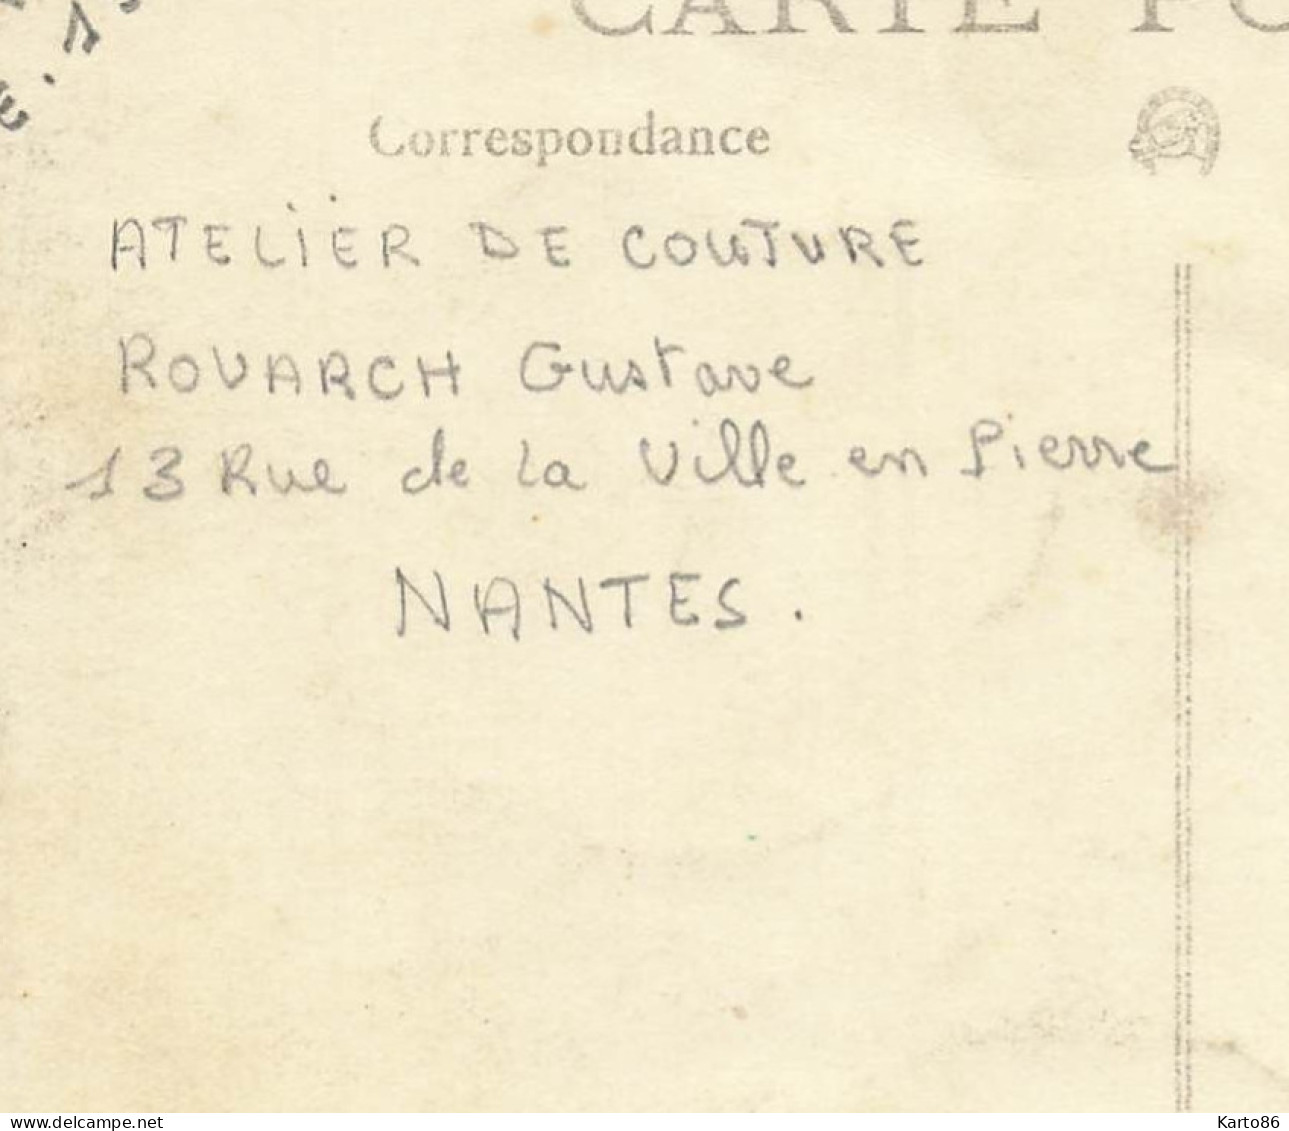 CARTE PO
Correspondance
ATELIER DE COUTURE
ROUARCH Gustave
13 Rue de la Ville en Pierre
NANTES.
www.delcampe.net
Karto86